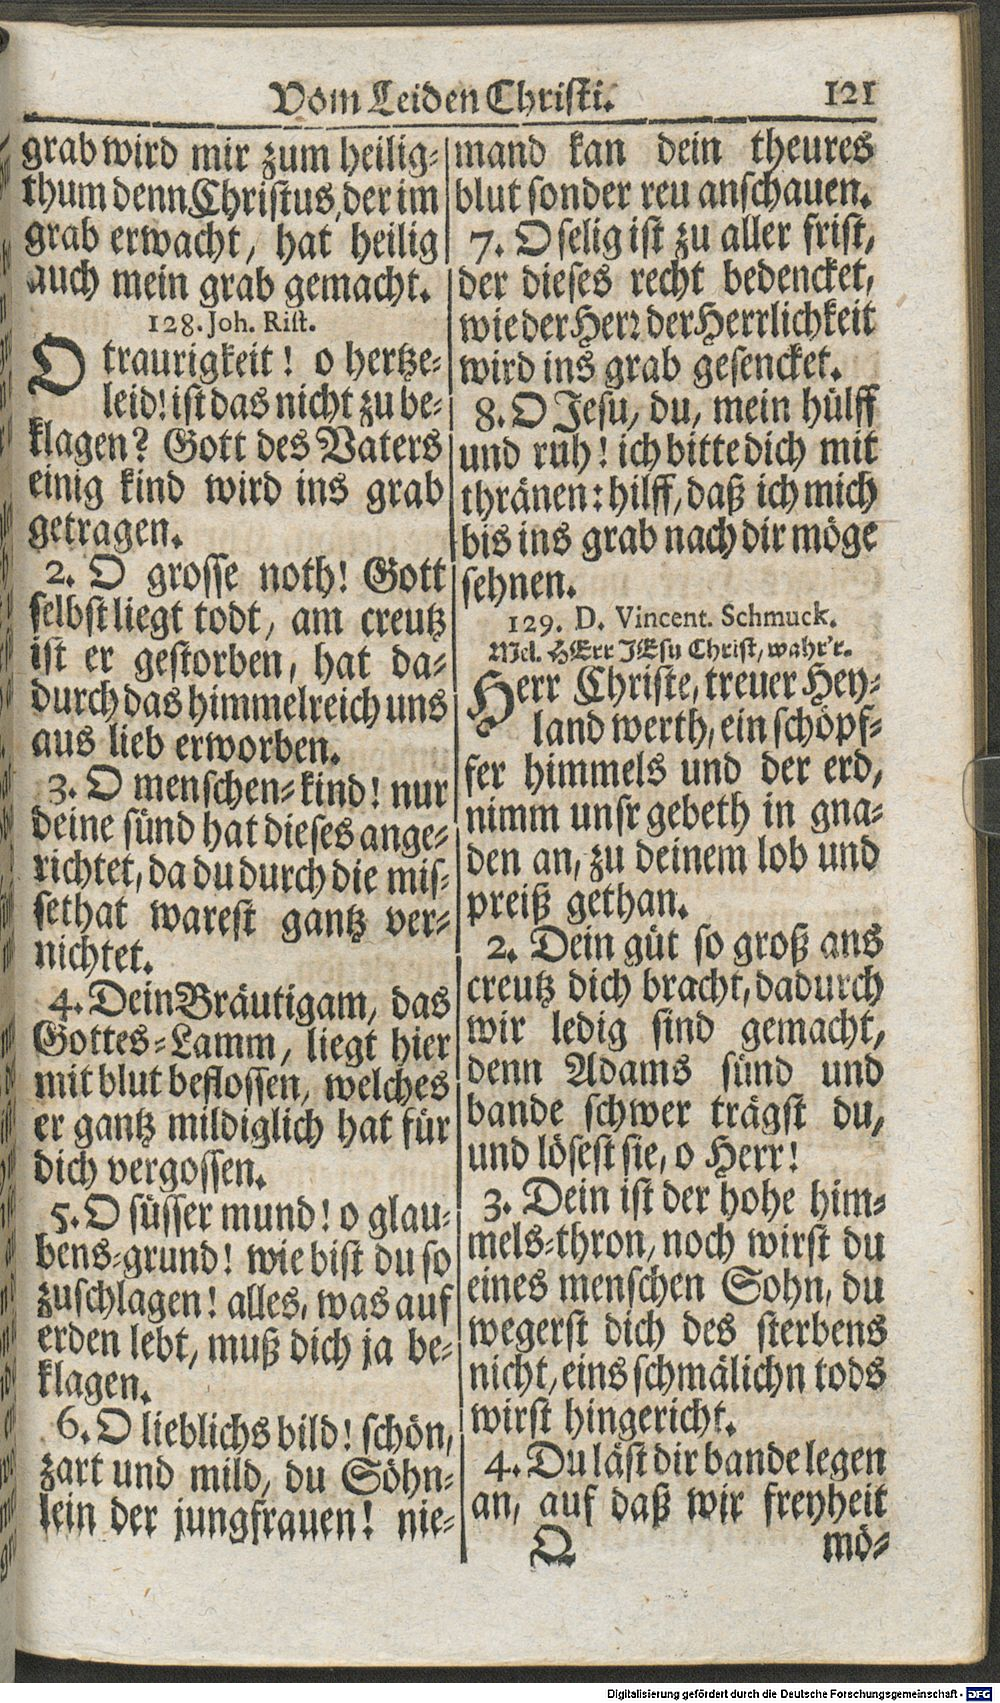 Vom Leiden Christi. 121
grab wird mir zum heilig-
thum denn Christus, der im
grab erwacht, hat heilig
auch mein grab gemacht.
128. Joh. Rist.
O traurigkeit! o hertze-
leid! ist das nicht zu be-
klagen? Gott des Vaters
einig kind wird ins grab
getragen.
2. O grosse noth! Gott
selbst liegt todt, am creutz
ist er gestorben, hat da-
durch das himmelreich uns
aus lieb erworben.
3. O menschen-kind! nur
deine sünd hat dieses ange-
richtet, da du durch die mis-
sethat warest gantz ver-
nichtet.
4. Dein Bräutigam, das
Gottes-Lamm, liegt hier
mit blut beflossen, welches
er gantz mildiglich hat für
dich vergossen.
5. O süsser mund! o glau-
bens-grund! wie bist du so
zuschlagen! alles, was auf
erden lebt, muß dich ja be-
klagen.
6. O lieblichs bild! schön,
zart und mild, du Söhn-
lein der jungfrauen! nie-
mand kan dein theures
blut sonder reu anschauen.
7. O selig ist zu aller frist,
der dieses recht bedencket,
wie der Herr der Herrlichkeit
wird ins grab gesencket.
8. O Jesu, du, mein hülff
und ruh! ich bitte dich mit
thränen: hilff, daß ich mich
bis ins grab nach dir möge
sehnen.
129. D. Vincent. Schmuck.
Mel. HErr JEsu Christ, wahr'r.
Herr Christe, treuer Hey-
land werth, ein schöpf-
fer himmels und der erd,
nimm unsr gebeth in gna-
den an, zu deinem lob und
preiß gethan.
2. Dein güt so groß ans
creutz dich bracht, dadurch
wir ledig sind gemacht,
denn Adams sünd und
bande schwer trägst du,
und lösest sie, o Herr!
3. Dein ist der hohe him-
mels-thron, noch wirst du
eines menschen Sohn, du
wegerst dich des sterbens
nicht, eins schmälichn tods
wirst hingericht.
4. Du läst dir bande legen
an, auf daß wir freyheit
Q mö-
Digitalisierung gefördert durch die Deutsche Forschungsgemeinschaft - DFG